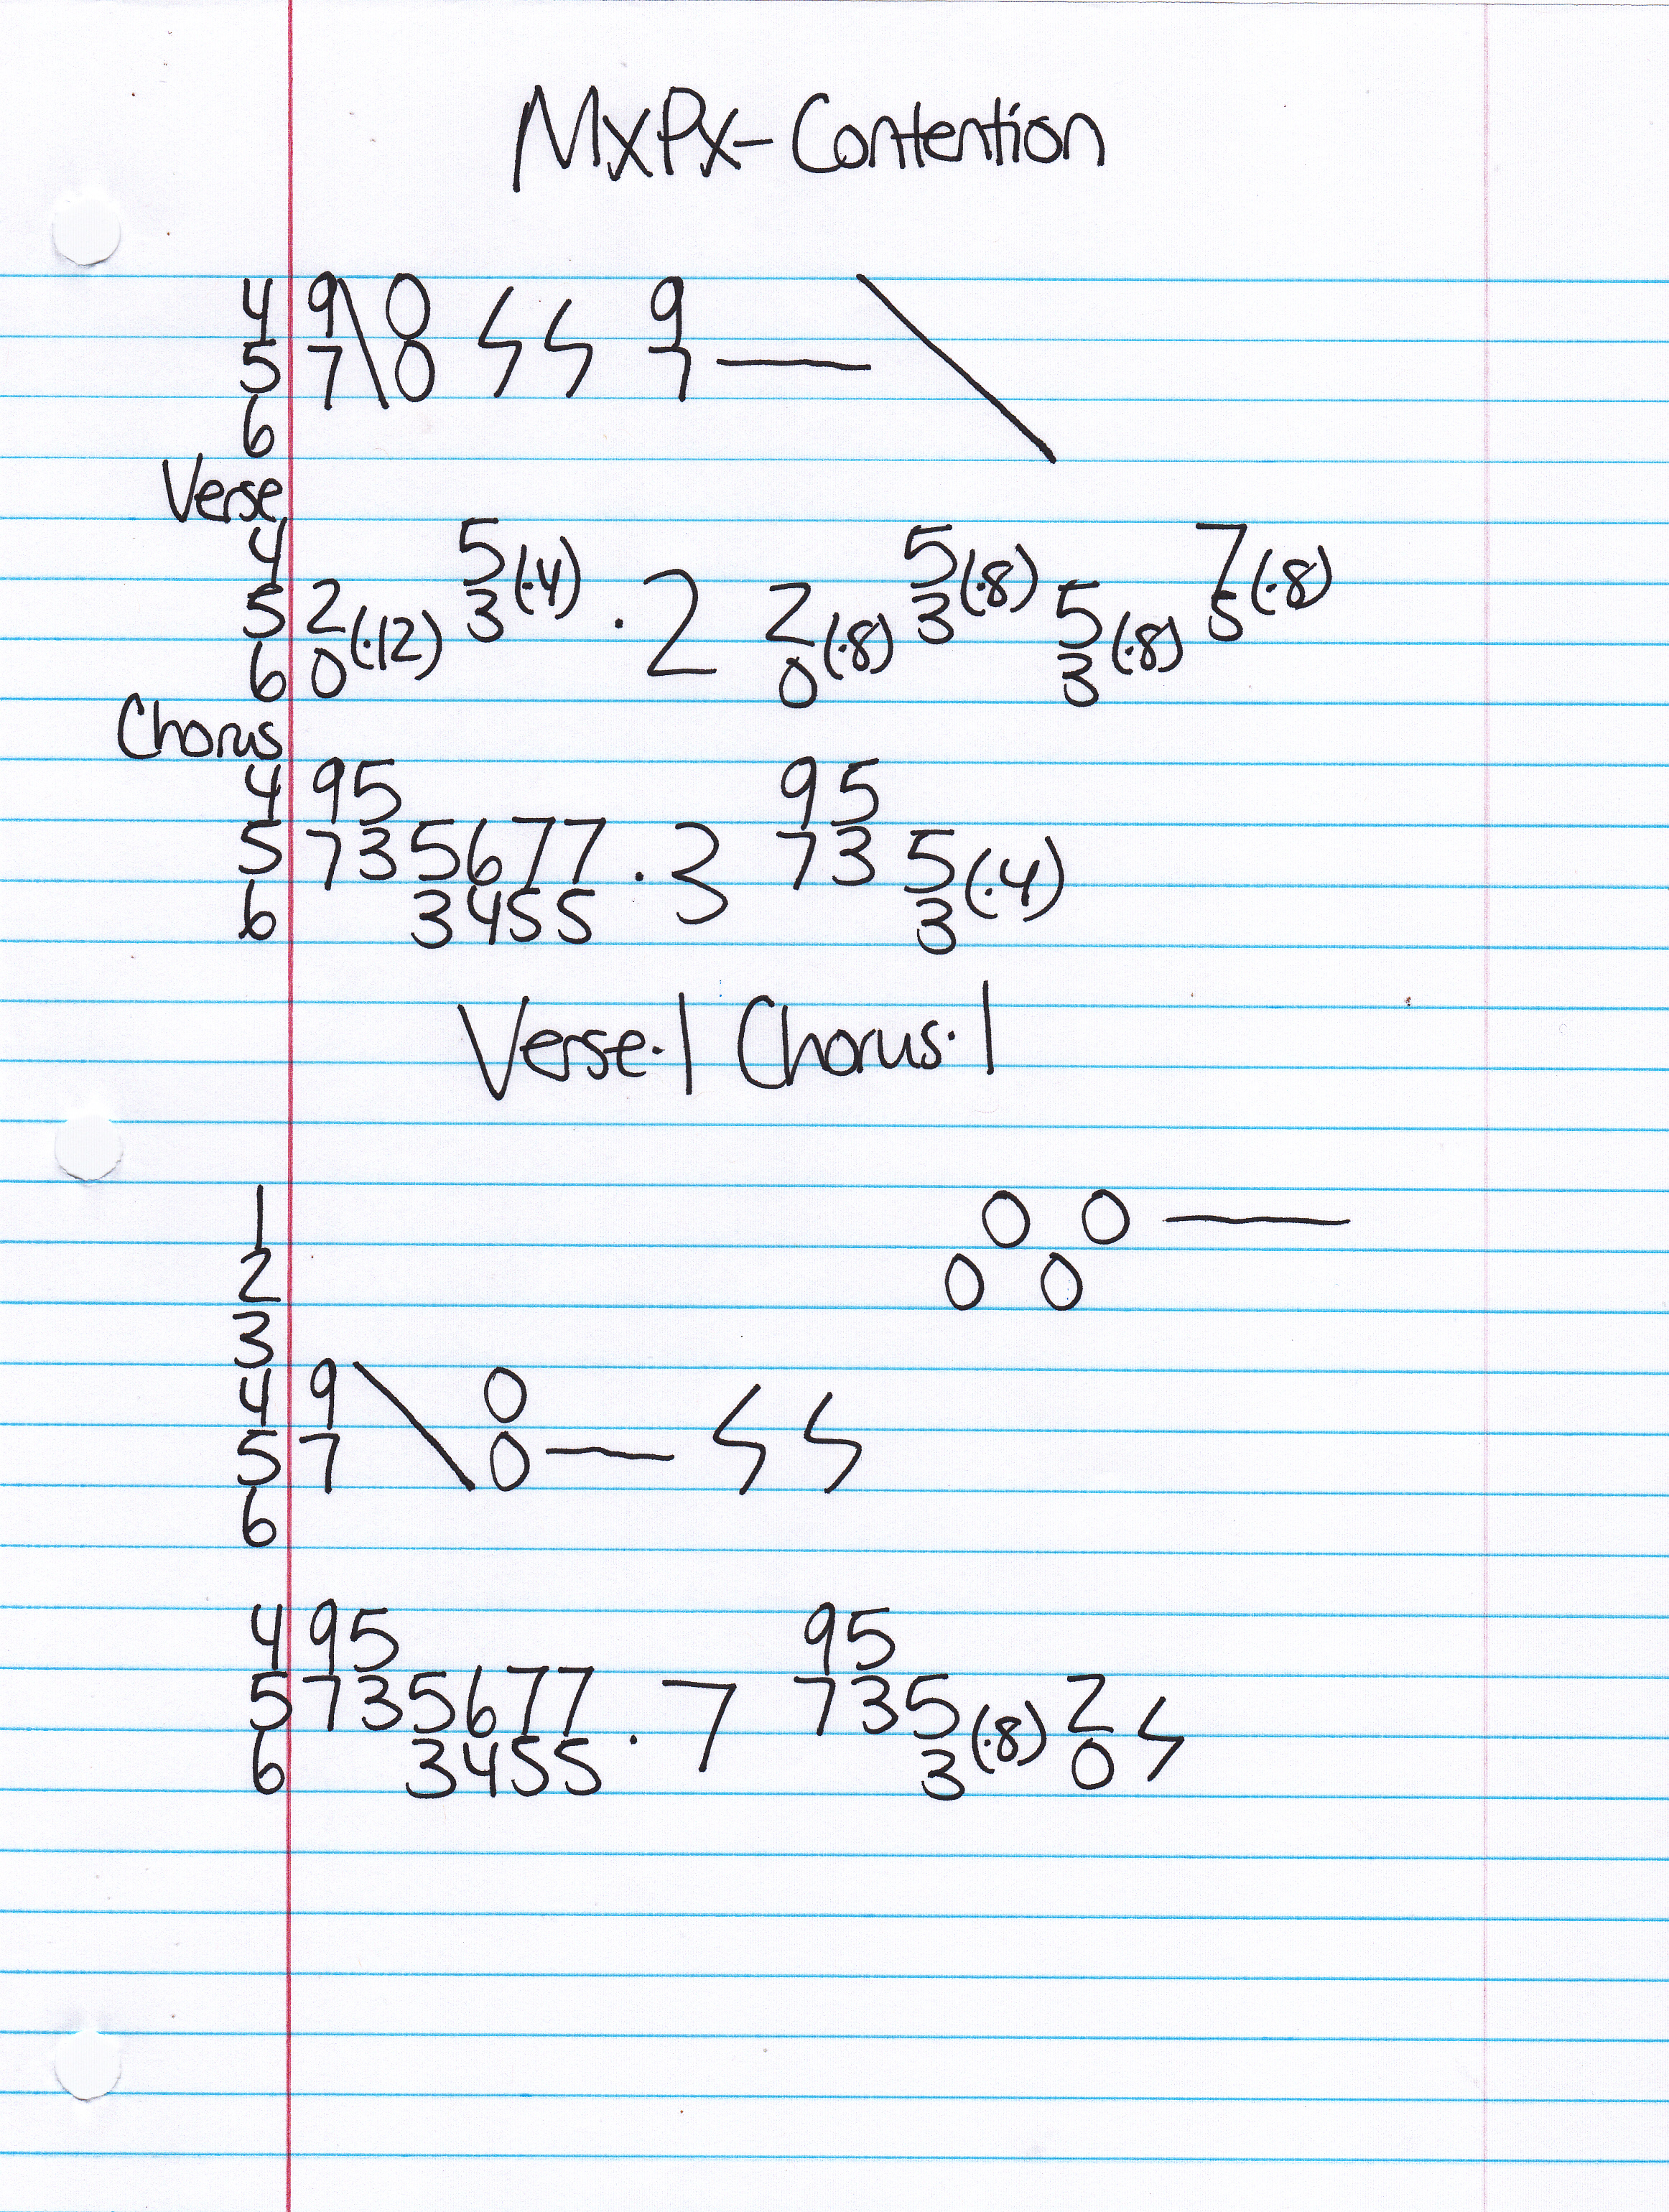 MxPx - Contention
4 9\0 ϟ ϟ 9 \
5 7\0 ϟ ϟ 7 —
6
Verse
4 5(·4) 5(·8) 7(·8)
5 2(·12) 3 ·2 2(·8) 3 5(·8) 5
6 0 0 3
Chorus
4 95 95
5 735677 ·3 73 5(·4)
6 3455 3
Verse·1 Chorus·1
1 0 0 —
2 0 0
3
4 9\0 ϟ ϟ
5 7\0 — ϟ ϟ
6
4 95 95
5 735677 ·7 735(·8) 2 ϟ
6 3455 3 0